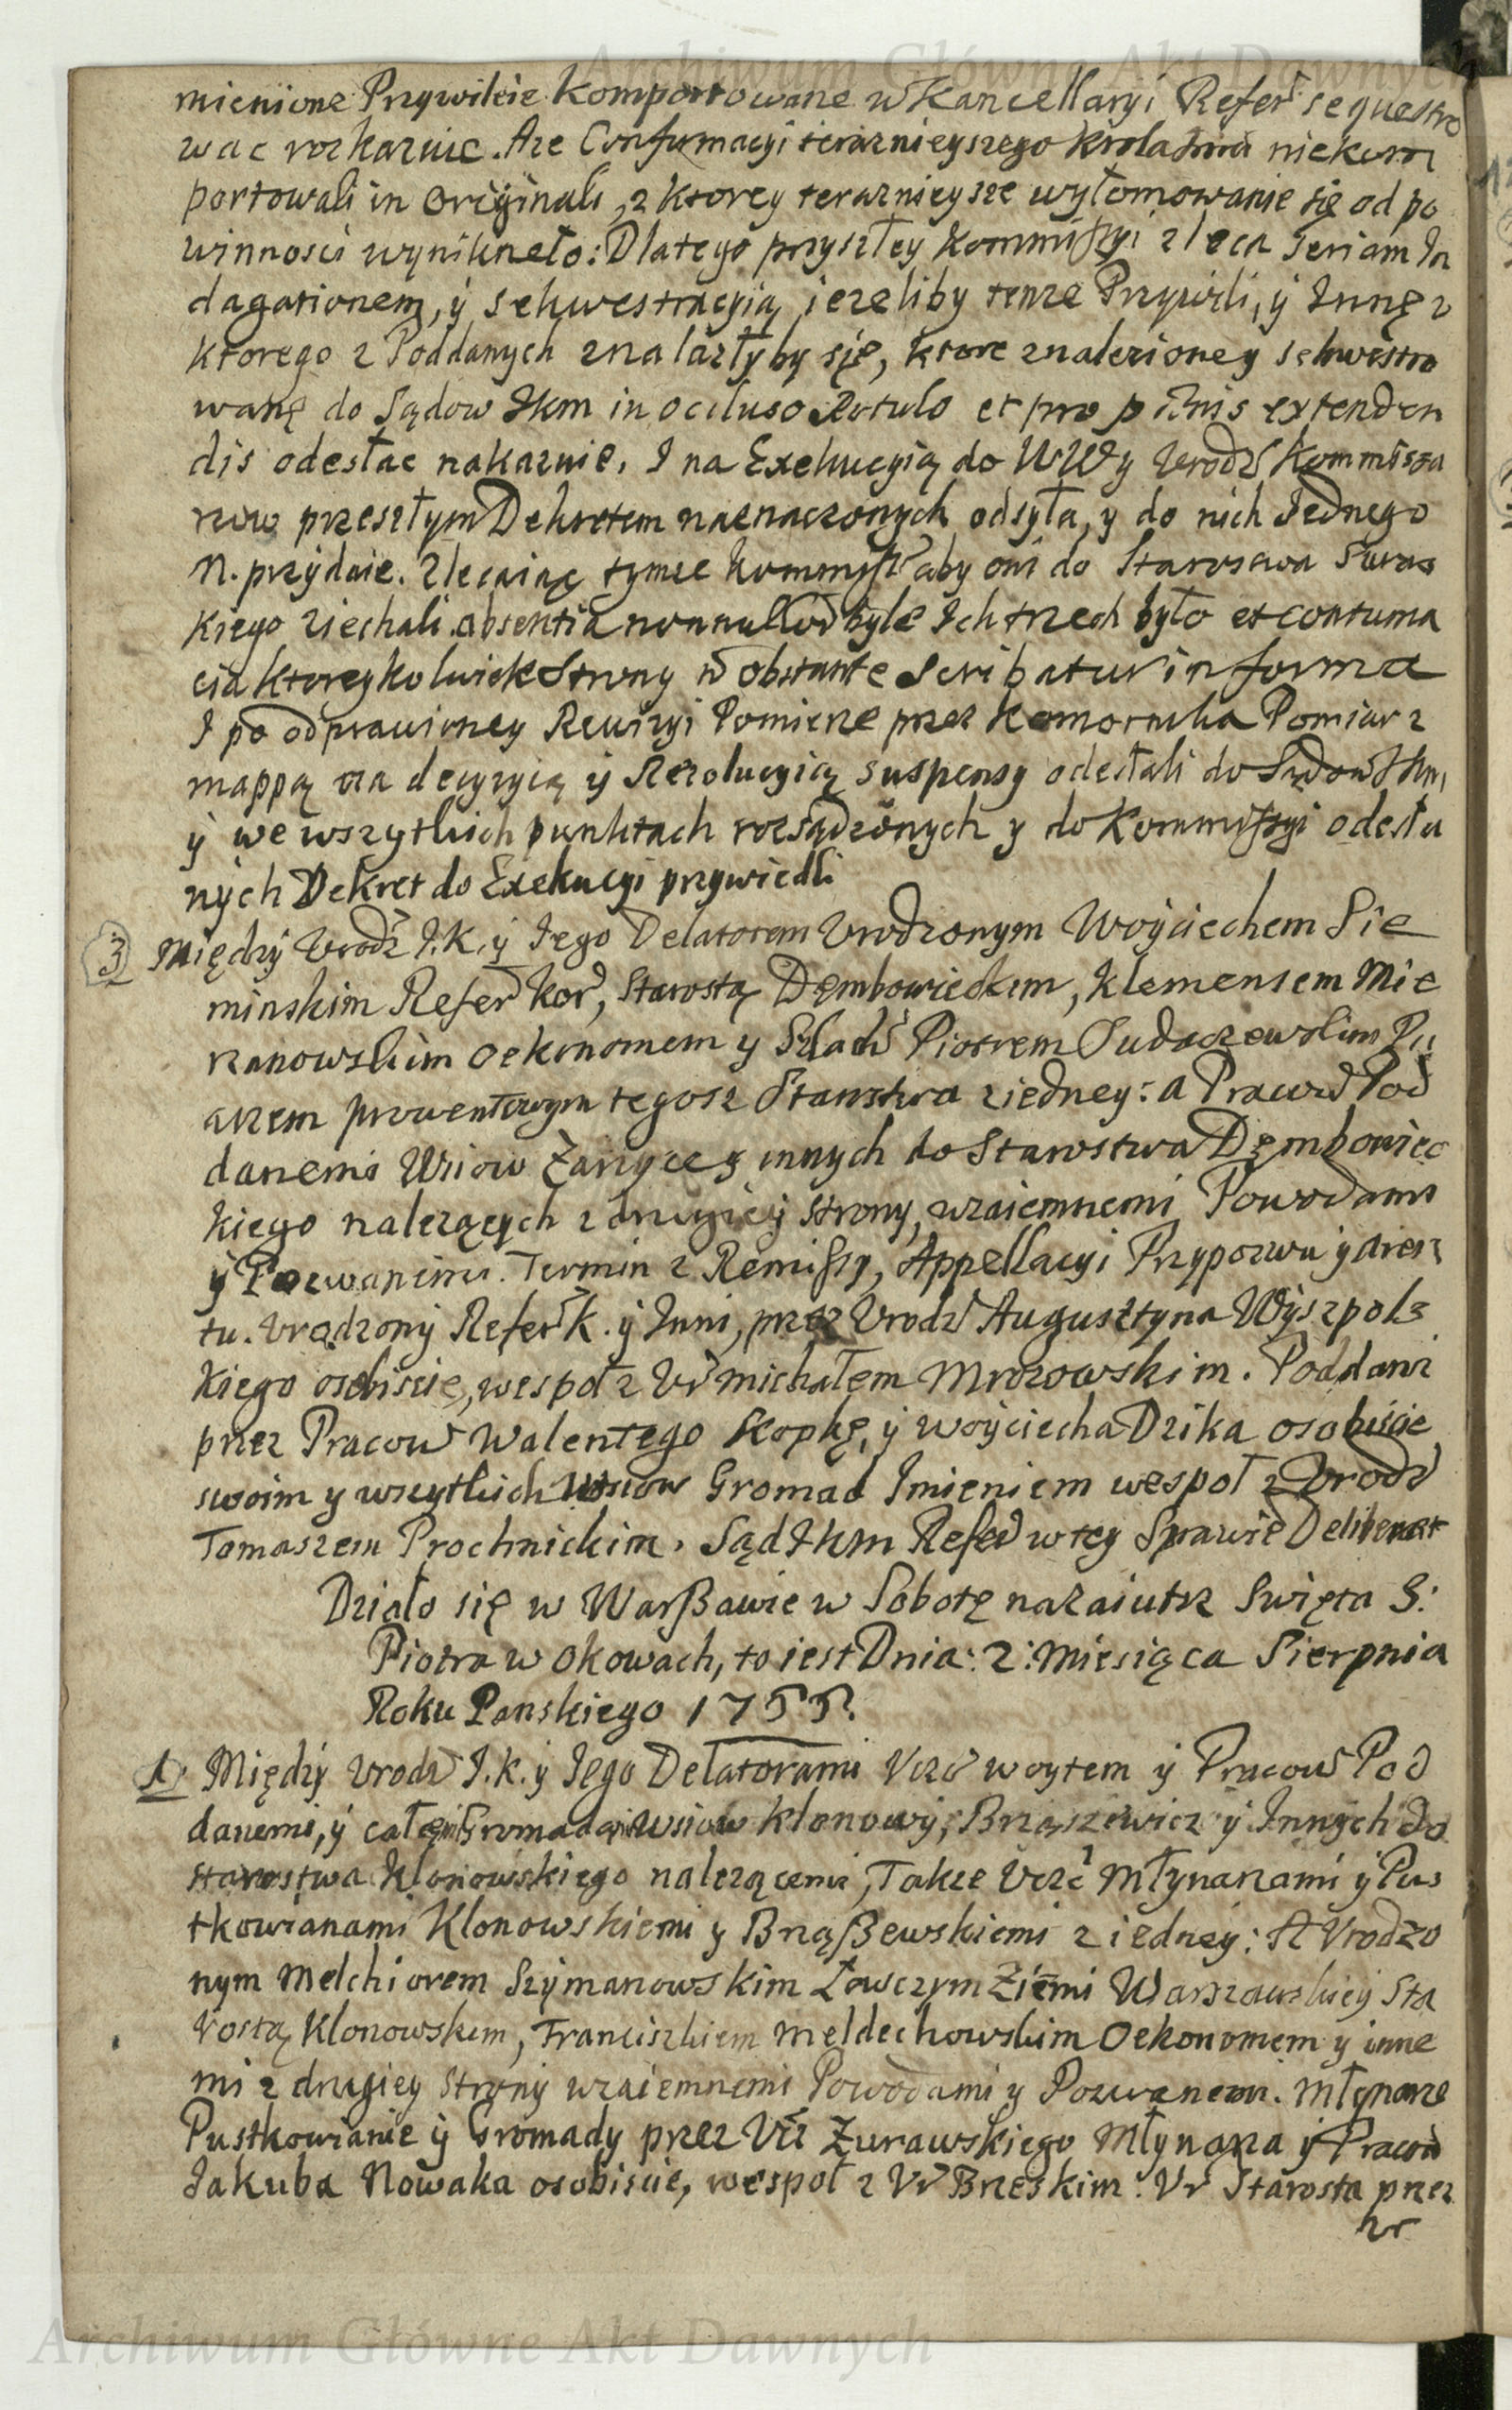 Archiwum Główne Akt Dawnych
mienione Przywileie komportowane w Kancellaryi Refer sequestro
wac rozkazuie. Aze Confirmacyi teraznieyszego Krola Jmci niekom
portowali in Originali, z ktorey terazniejsze wyłomowanie się od po
winnosci wynikneło: Dlatego przyszłey Kommissyi zleca seriam In
dagationem, y sekwestracyią, iezeliby tenze Przywili, y Inne v
ktorego z Poddanych znalazłyby się, ktore znalezioney sekwestro
wane do Sądow Jkm in occluso Rotulo et pro extenden
dis odesłac nakazuie. I na Exekucyią do WWy Urodz Kommissa
rzow przeszłym Dekretem naznaczonych odsyła, y do nich Jednego
N. przydaie. Zlecaiąc tymze Kommiss aby oni do Starostwa Suras
kiego ziechali. absentia nonnullor byle Ich trzech było et contuma
cia ktoreykolwiek Strony n obstante Scribatur in forma
I po odprawioney Rewizyi Pomierze przez Komornika Pomiar z
mappą na decyzyią y Rezolucyią suspensy odesłali do Sądow Jkm,
y we wszytkich punktach rozsądzonych y do Kommissyi odesła
nych Dekret do Exekucyi przywiedli
3 Między Urodz J.K. y Jego Delatorem Urodzonym Woyciechem Sie
minskim Refer Kor, Starostą Dembowieckim, Klemensem Mie
rzanowskim Oekonomem y Szlach Piotrem Dudaczewskim Pis
arzem prowentowym tegosz Starostwa ziedney: a Pracow Pod
danemi Wsiow Zarzyce y innych do Starostwa Dembowiec
kiego nalezących z drugiey Strony, wzaiemnemi Powodami
y Pozwanemi. Termin z Remissy, Appellacyi Przypozwu y Aresz
tu. Urodzony Refer K. y Inni, przez Urodz Augusztyna Wyszpols
kiego osobiscie, wespoł z Ur Michałem Mrozowskim. Poddani
przez Pracow Walentego Kopkę, y Woyciecha Dzika osobiscie
swoim y wszytkich Wsiow Gromad Imieniem wespoł z Urodz
Tomaszem Prochnickim. Sąd Jkm Refer w tey Sprawie Deliberat
Działo się w Warßawie w Sobotę nazaiutrz Swięta S:
Piotra w Okowach, to iest Dnia: 2: Miesiąca Sierpnia
Roku Panskiego 1755.
1. Między Urodz J.K. y Jego Delatorami Ucz woytem y Pracow Pod
danemi, y całemi Gromadami Wsiow Klonowy, Brąszewicz y Innych do
Starostwa Klonowskiego nalezącemi, Takze Ucz Młynarzami y Pus
tkowianami Klonowskiemi y Brąßewskiemi z iedney: A Urodzo
nym Melchiorem Szymanowskim Łowczym Ziemi Warszawskiey Sta
rostą Klonowskim, Franciszkiem Meldechowskim Oekonomem y inne
mi z drugiey Strony wzaiemnemi Powodami y Pozwanemi. Młynarze
Pustkowianie y Gromady przez Ucz Zurawskiego Młynarza y Pracow
Jakuba Nowaka osobiscie, wespoł z Ur Brzeskim. Ur Starosta przez
Ur
Archiwum Główne Akt Dawnych